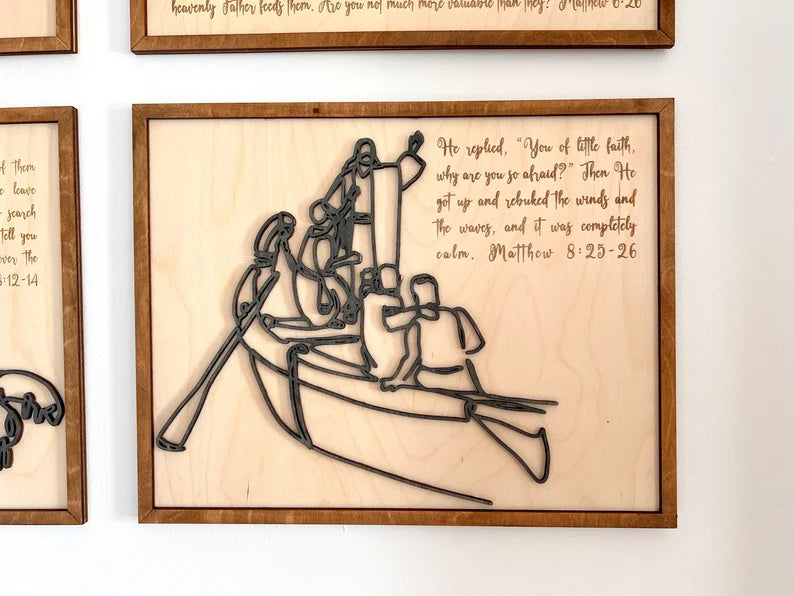 heavenly Father feeds them. Are you not much more valuable than they? Matthew 6:26
He replied, "You of little faith,
why are you so afraid?" Then He
got up and rebuked the winds and
the waves, and it was completely
calm. Matthew 8:25-26
of them
leave
search
tell you
over the
8:12-14